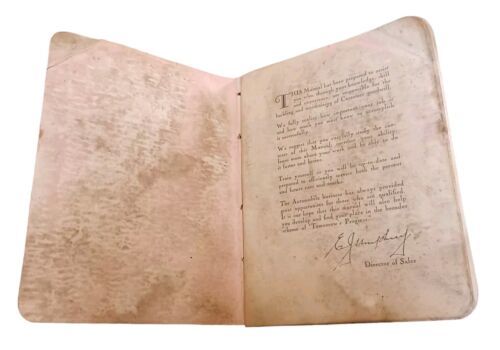 THIS Manual has been prepared to assist
you who, through your knowledge, skill
and experience, are responsible for the
building and maintaining of Customer goodwill.
We fully realize how important your job is
and how much you must know to accomplish
it successfully.
We suggest that you carefully study the con-
tents of this Manual, exercise its ability,
learn more about your work and be able to do
it faster and better.
Train yourself so you will be up-to-date and
prepared to efficiently service both the present
and future cars and trucks.
The Automobile business has always provided
great opportunities for those who are qualified.
It is our hope that this manual will also help
you develop and find your place in the broader
scheme of "Tomorrow's Progress."
Director of Sales